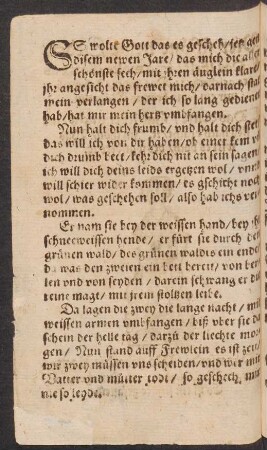 ES wolte Gott das es gescheh/
disem newen Jare/ das mich die
schönste sech/ mit jhren äuglein klare/
jhr angesicht das frewet mich/ darnach
mein verlangen/ der ich so lang gedienet
hab/ hat mir mein hertz vmbfangen.
Nun halt dich frumb/ vnd halt dich
das will ich von dir haben/ ob einer kem
dich drumb bett/ kehr dich nit an sein sagen
ich will dich deins leids ergetzen wol/
will schier wider kommen/ es gschicht noch
wol/ was geschehen soll/ also hab ichs
nommen.
Er nam sie bey der weissen hand/ bey
schneeweissen hende/ er fürt sie durch
grünen wald/ des grünen waldts ein
da was den zweien ein bett bereit/ von
len vnd von seyden/ darein schwang er
reine magt/ mit jrem stoltzen leibe.
Da lagen die zwey die lange nacht/ mit
weissen armen vmbfangen/ biß vber sie
schein der helle tag/ darzu der liechte
gen/ Nun stand auff Frewlein es ist
wir zwey müssen vns scheiden/ vnd wer
Vatter vnd mütter todt/ so geschech
nie so leyde.